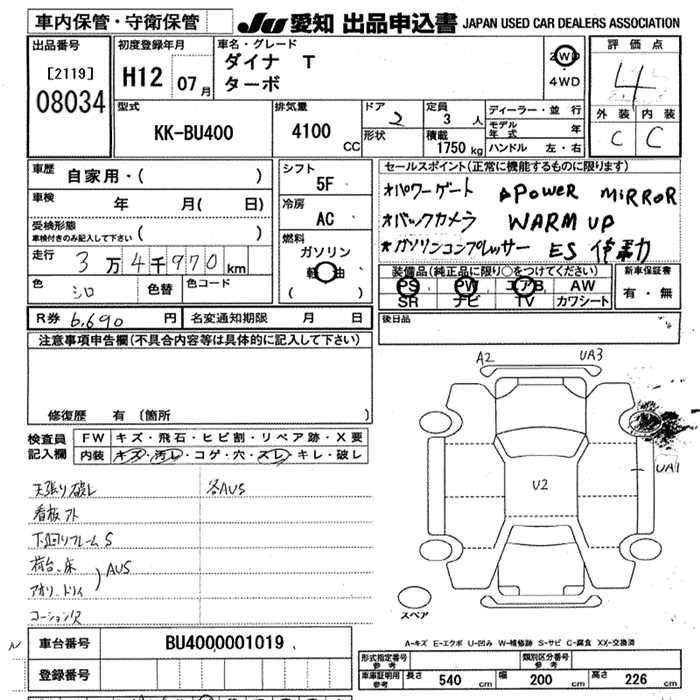 車内保管・守衛保管 JU 愛知 出品申込書 JAPAN USED CAR DEALERS ASSOCIATION
出品番号 [2119] 08034
初度登録年月 H12 07月
車名・グレード ダイナ T ターボ
2WD ・ 4WD
評価点 4
外装 内装
C C
型式 KK-BU400
排気量 4100 CC
ドア 2
形状
定員 3 人
積載 1750 kg
ディーラー・並行
モデル年式 年
ハンドル 左・右
車歴 自家用・( )
車検 年 月( 日)
受検形態 車検付きのみ記入して下さい ( )
走行 3万4千970km
色 シロ 色替 色コード
シフト 5F
冷房 AC
燃料 ガソリン 軽油 ( )
セールスポイント(正常に機能するものに限ります)
*パワーゲート *POWER MIRROR
*バックカメラ WARM UP
*ガソリンコンプレッサー ES
装備品(純正品に限り○をつけてください)
PS PW エアB AW
SR ナビ TV カワシート
新車保証書
有・無
R券 6,690 円 名変通知期限 月 日
後日品
注意事項申告欄(不具合内容等は具体的に記入して下さい)
修復歴 有 〔箇所
検査員記入欄
FW キズ・飛石・ヒビ割・リペア跡・X要
内装 キズ・汚レ・コゲ・穴・スレ・キレ・破レ
天張り破レ 各AUS
看板アト
下廻りフレームS
荷台、床 AUS
コーションX
A2 UA3
UA1
U2
スペア
A-キズ E-エクボ U-凹み W-補修跡 S-サビ C-腐食 XX-交換済
車台番号 BU4000001019
登録番号
形式指定番号 参考 類別区分番号 参考
車庫証明用 参考 長さ 540 cm 幅 200 cm 高さ 226 cm